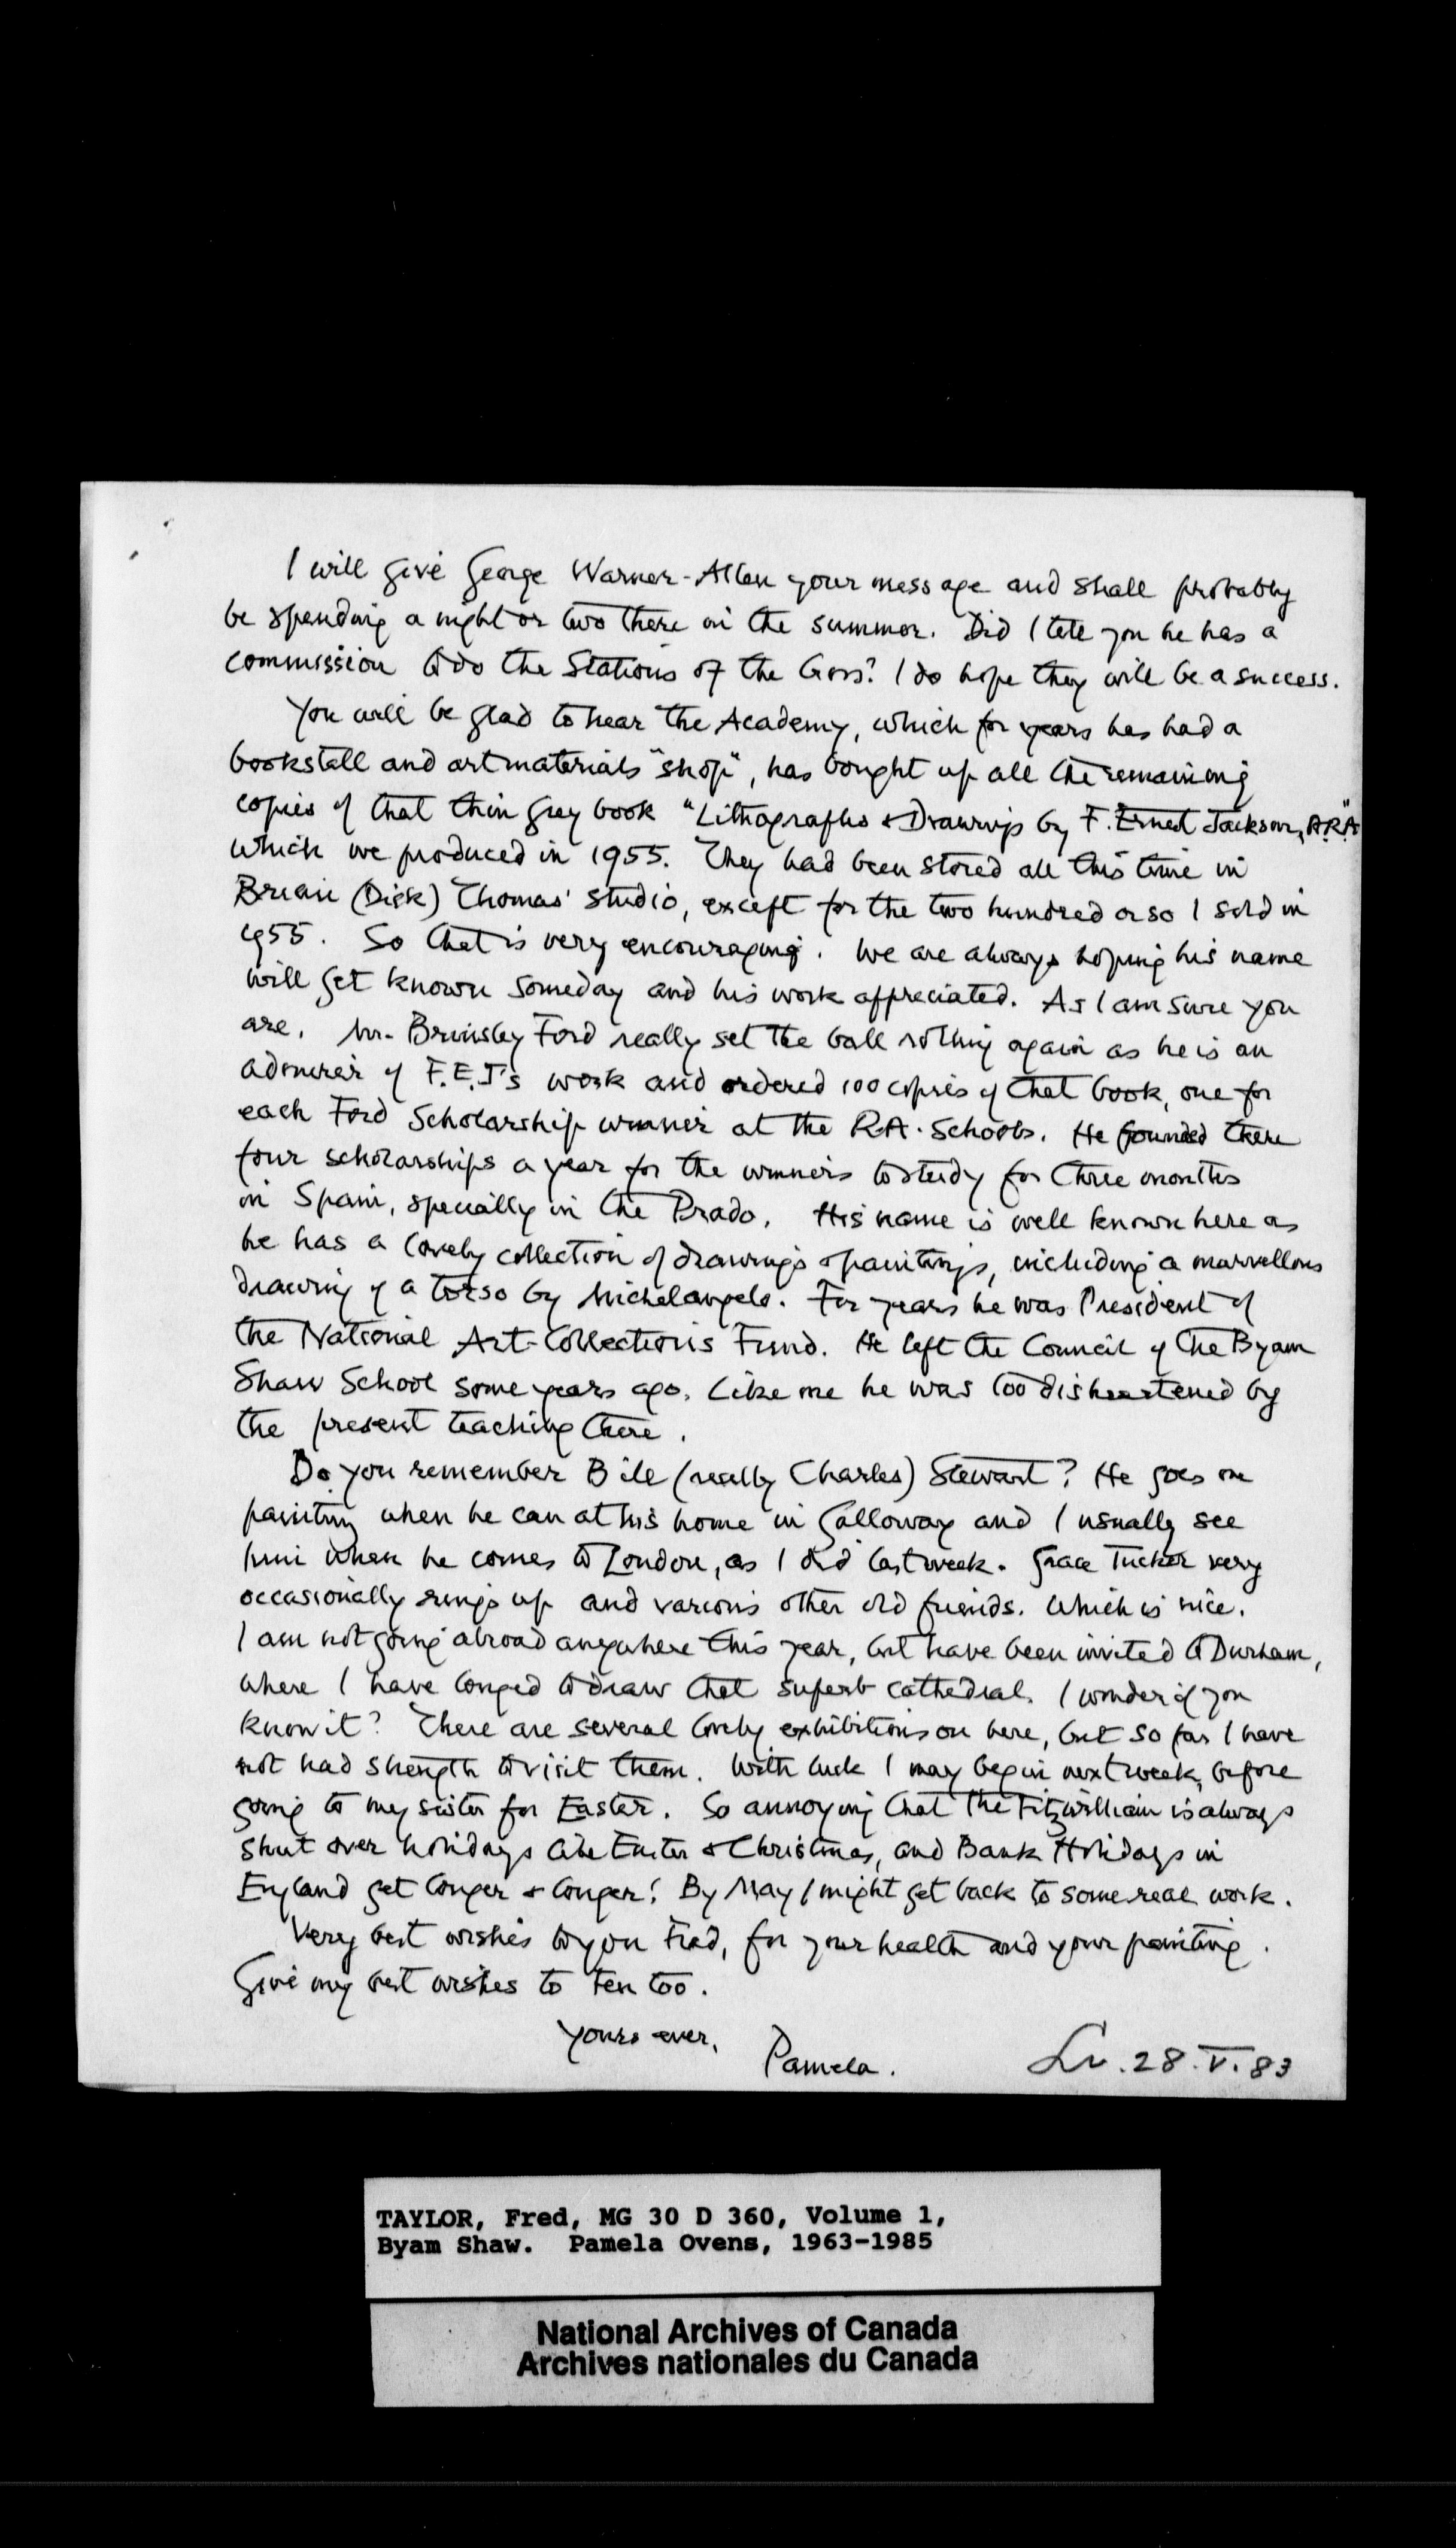 I will give George Warner-Allen your message and shall probably
be spending a night or two there in the summer. Did I tell you he has a
commission to do the Stations of the Cross? I do hope they will be a success.
You will be glad to hear the Academy, which for years has had a
bookstall and art materials "shop", has bought up all the remaining
copies of that thin grey book "Lithographs & Drawings by F. Ernest Jackson, A.R.A"
which we produced in 1955. They had been stored all this time in
Brian (Dick) Thomas' studio, except for the two hundred or so I sold in
1955. So that is very encouraging. We are always hoping his name
will get known someday and his work appreciated. As I am sure you
are. Mr. Brinsley Ford really set the ball rolling again as he is an
admirer of F.E.J's work and ordered 100 copies of that book, one for
each Ford Scholarship winner at the R.A. Schools. He founded there
four scholarships a year for the winners to study for three months
in Spain, specially in the Prado. His name is well known here as
he has a lovely collection of drawings & paintings, including a marvellous
drawing of a torso by Michelangelo. For years he was President of
the National Art-Collections Fund. He left the Council of the Byam
Shaw School some years ago. Like me he was too disheartened by
the present teaching there.
Do you remember Bill (really Charles) Stewart? He goes on
painting when he can at his home in Galloway and I usually see
him when he comes to London, as I did last week. Grace Tucker very
occasionally rings up and various other old friends. Which is nice.
I am not going abroad anywhere this year, but have been invited to Durham,
where I have longed to draw that superb cathedral. I wonder if you
know it? There are several lovely exhibitions on here, but so far I have
not had strength to visit them. With luck I may begin next week, before
going to my sister for Easter. So annoying that the Fitzwilliam is always
shut over holidays like Easter & Christmas, and Bank Holidays in
England get longer & longer! By May I might get back to some real work.
Very best wishes to you Fred, for your health and your painting.
Give my best wishes to Fen too.
Yours ever,
Pamela.
28.V.83
TAYLOR, Fred, MG 30 D 360, Volume 1,
Byam Shaw. Pamela Ovens, 1963-1985
National Archives of Canada
Archives nationales du Canada